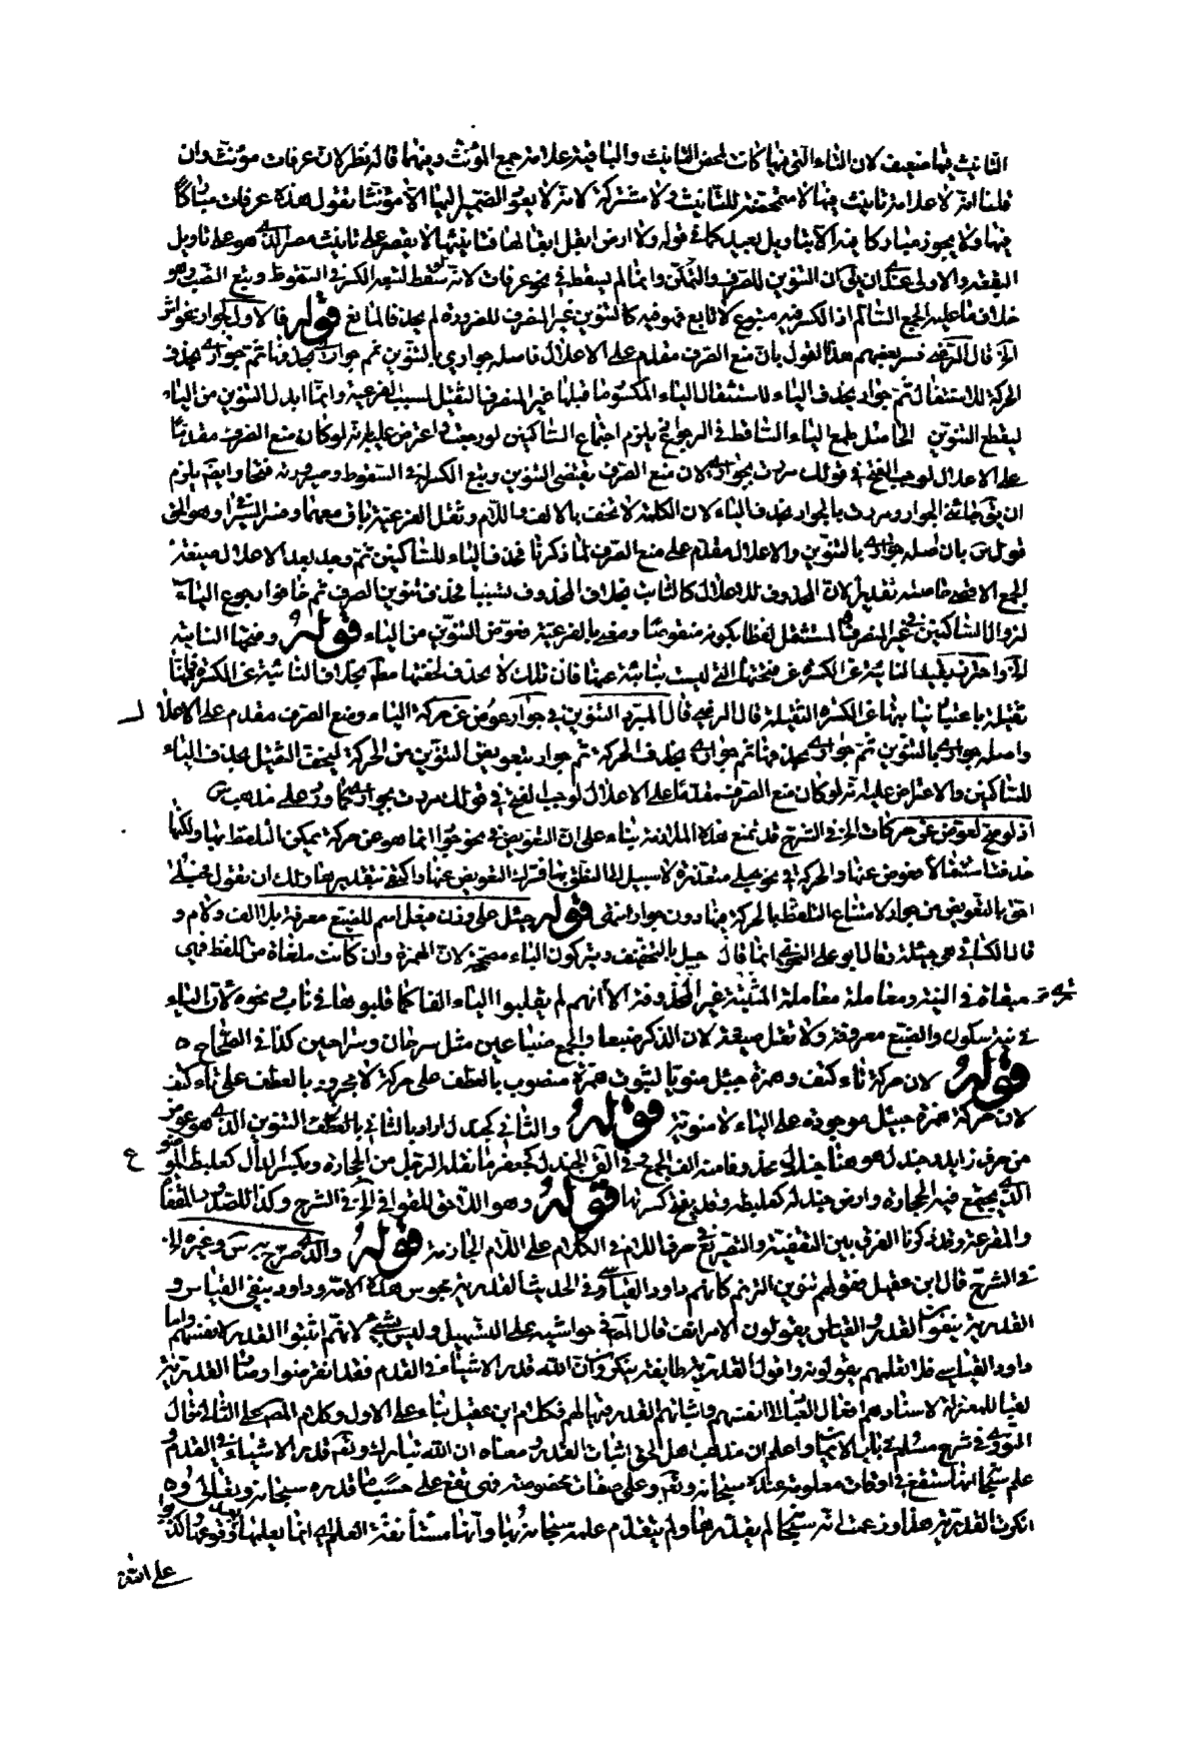 التانيث فيها ضعيف لان التاء التي فيها كانت لمحض التانيث والباقية علامة جمع المؤنث وفيهما قاله نظر لان عرفات مؤنث وان
قلنا انه لا علامة تانيث فيها لا متمحضة للتانيث ولا مشتركة لانه لا يعود الضمير اليها الا مؤنثا تقول هذه عرفات مباركا
فيها ولا يجوز مباركا فيه الا بتاويل بعيد كما في قوله ولا ارض ابقل ابقالها فتانيثها لا يقصر على تانيث مصر الذي هو على تاويل
البقعة والاولى عندي ان يق ان التنوين للصرف والتمكن وانما لم يسقط في نحو عرفات لانه لو سقط لتبعه الكسر في السقوط وتبع النصب وهو
خلاف ما عليه الجمع السالم اذ الكسر فيه متبوع لا تابع فهو فيه كالتنوين غير المنصرف للضرورة لم يحذف لمانع قوله فالاول لجوار نحو
الخ قال الرضي فسر بعضهم هذا القول بان منع الصرف مقدم على الاعلال فاصله جواري بالتنوين ثم جواري بحذفها ثم جواري بحذف
الحركة للاستثقال ثم جوار بحذف الياء لاستثقال الياء المكسور ما قبلها غير المنصرف الثقيل لسبب الفرعية وانما ابدل التنوين من الياء
ليقطع التنوين الحاصل طمع الياء الساقط في الرجوع اذ يلزم اجتماع الساكنين لو رجعت واعترض عليه بانه لو كان منع الصرف مقدما
على الاعلال لوجب الفتح في قولك مررت بجواري لان منع الصرف يقتضي التنوين ويتبع الكسر في السقوط وصيرورته فتحا وايضا يلزم
ان يق جائني الجوار ومررت بالجوار بحذف الياء لان الكلمة لا تخف بالالف واللام وثقل الفرعية باق معهما وفسر السيرافي وهو الحق
قول س بان اصله جواري بالتنوين والاعلال مقدم على منع الصرف لما ذكرنا فحذف الياء للساكنين ثم وجد بعد الاعلال صيغة
الجمع الاقصى حاصلة تقديرا لان المحذوف للاعلال كالثابت بخلاف المحذوف نسيا فحذف تنوين الصرف ثم خافوا رجوع الياء
لزوال الساكنين في غير المنصرف المستثقل لفظا بكونه منقوصا ومعنى بالفرعية فعوض التنوين من الياء قوله وفتحها النائبة
الخ واحترز بتقييد النائبة عن الكسرة عن فتحتها التي ليست بنائبة عنها فان تلك لا يحذف لخفتها معه بخلاف النائبة عن الكسرة فانها
ثقيلة باعتبار نيابتها عن الكسرة الثقيلة قال الرضي قال المبرد التنوين في جوار عوض عن حركة الياء ومنع الصرف مقدم على الاعلال
واصله جواري بالتنوين ثم جواري بحذفها ثم جواري بحذف الحركة ثم جوار بتعويض التنوين من الحركة ليخف الثقيل بحذف الياء
للساكنين والاعتراض عليه انه لو كان منع الصرف مقدما على الاعلال لوجب الفتح في قولك مررت بجواري كما ورد على مذهب س
اذ لو صح لعوض عن حركات الخ في الشرح قد تمنع هذه الملازمة بناء على ان التعويض في نحو جوار انما هو عن حركة يمكن التلفظ بها ولكنها
حذفت استثقالا فعوض عنها والحركة في نحو حبلى متعذرة لا سبيل الى التلفظ بها فترك التعويض عنها واكتفى بتقديرها ولك ان تقول حبلى
احق بالتعويض من جوار لامتناع التلفظ بالحركة فيها دون جوار انتهى قوله جيئل على وزن فيعل اسم للضبع معرفة بلا الف ولام و
قال الكسائي هي جيئلة وقال ابو علي النحوي انما قال جيل بالتخفيف ويتركون الياء مصححة لان الهمزة وان كانت ملغاة من اللفظ فهي
مبقاة في النية ومعاملة معاملة المثبتة غير المحذوفة الا انهم لم يقلبوا الياء الفا كما قلبوها في ناب ونحوه لان الياء
في نية سكون والضبع معروفة ولا تقل ضبعة لان الذكر ضبعان والجمع ضباعين مثل سرحان وسراحين كذا في الصحاح
قوله لان حركة تاء كتف وهمزة جيئل منويا لثبوت همزة منصوب بالعطف على حركة لا مجرورة بالعطف على تاء كتف
لان حركة همزة جيئل موجودة على الياء لا منوية قوله والثاني كجندل اراد بالثاني بالعطف التنوين الذي هو عوض
من حرف زايد جندل هو هنا جنادل حذفا منه الف الجمع في ق الجندل كجعفر ما نقله الرجل من الحجارة وبكسر الدال كعلبط الموضع
الذي يجتمع فيه الحجارة وارض جندلة كعلبطة وقد يفتح كسرتها قوله وهو اللاحق للقوافي الخ في الشرح وكذا للصدر المقفاة
والمصرعة وقد ذكرنا الفرق بين التقفية والتصريع في حرف اللام في الكلام على اللام الجازمة قوله والذي صرح به س وغيره الخ
في الشرح قال ابن عقيل فقولهم تنوين الترنم كقولهم داود القياسي وفي الحديث القدرية مجوس هذه الامة وداود ينفي القياس و
القدرية ينفون القدر والقياس يقولون الامر انف قال المص في حواشيه على التسهيل وليس بشيء لانهم اثبتوا القدر لانفسهم واما
داود القياسي فلا نعلمهم يقولونه واقول القدرية طايفة ينكرون ان الله قدر الاشياء في القدم فقد انقرضوا وصار القدرية
لقبا للمعتزلة لاسنادهم افعال العباد الى انفسهم واثباتهم القدر فيها لهم فكلام ابن عقيل بناء على الاول وكلام المص على الثاني قال
النووي في شرح مسلم في باب الايمان واعلم ان مذهب اهل الحق اثبات القدر ومعناه ان الله تبارك وتعه قدر الاشياء في القدم و
علم سبحانه انها ستقع في اوقات معلومة عنده سبحانه وتعه وعلى صفات مخصوصة فهي تقع على حسب ما قدره سبحانه وتعالى
انكرت القدرية هذا وزعمت انه سبحانه لم يقدرها ولم يتقدم علمه سبحانه بها وانها مستانفة العلم اي انما يعلمها بعد وقوعها وكذبوا
على الله